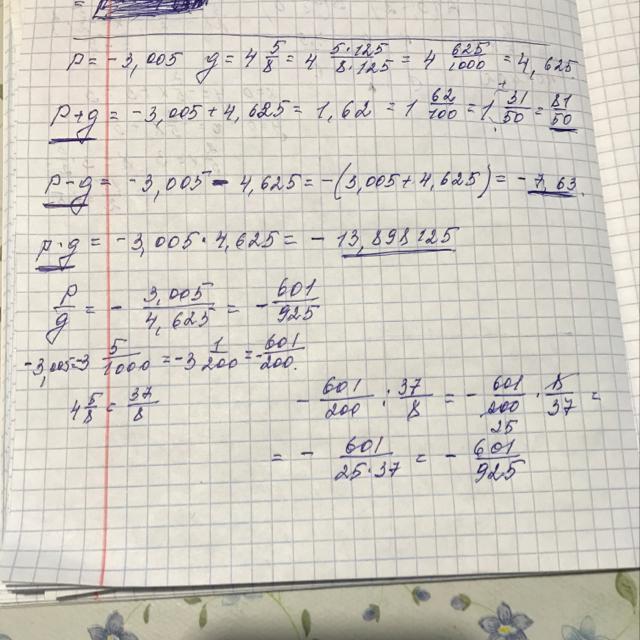 =
p = -3,005 g = 4 5/8 = 4 5·125/8·125 = 4 625/1000 = 4,625
p+g = -3,005+4,625 = 1,62 = 1 62/100 = 1 31/50 = 81/50
p-g = -3,005 - 4,625 = -(3,005+4,625) = -7,63.
p·g = -3,005·4,625 = -13,898125
p/g = - 3,005/4,625 = - 601/925
-3,005=-3 5/1000 = -3 1/200 = -601/200.
4 5/8 = 37/8
- 601/200 : 37/8 = - 601/200 · 8/37 =
25
= - 601/25·37 = - 601/925